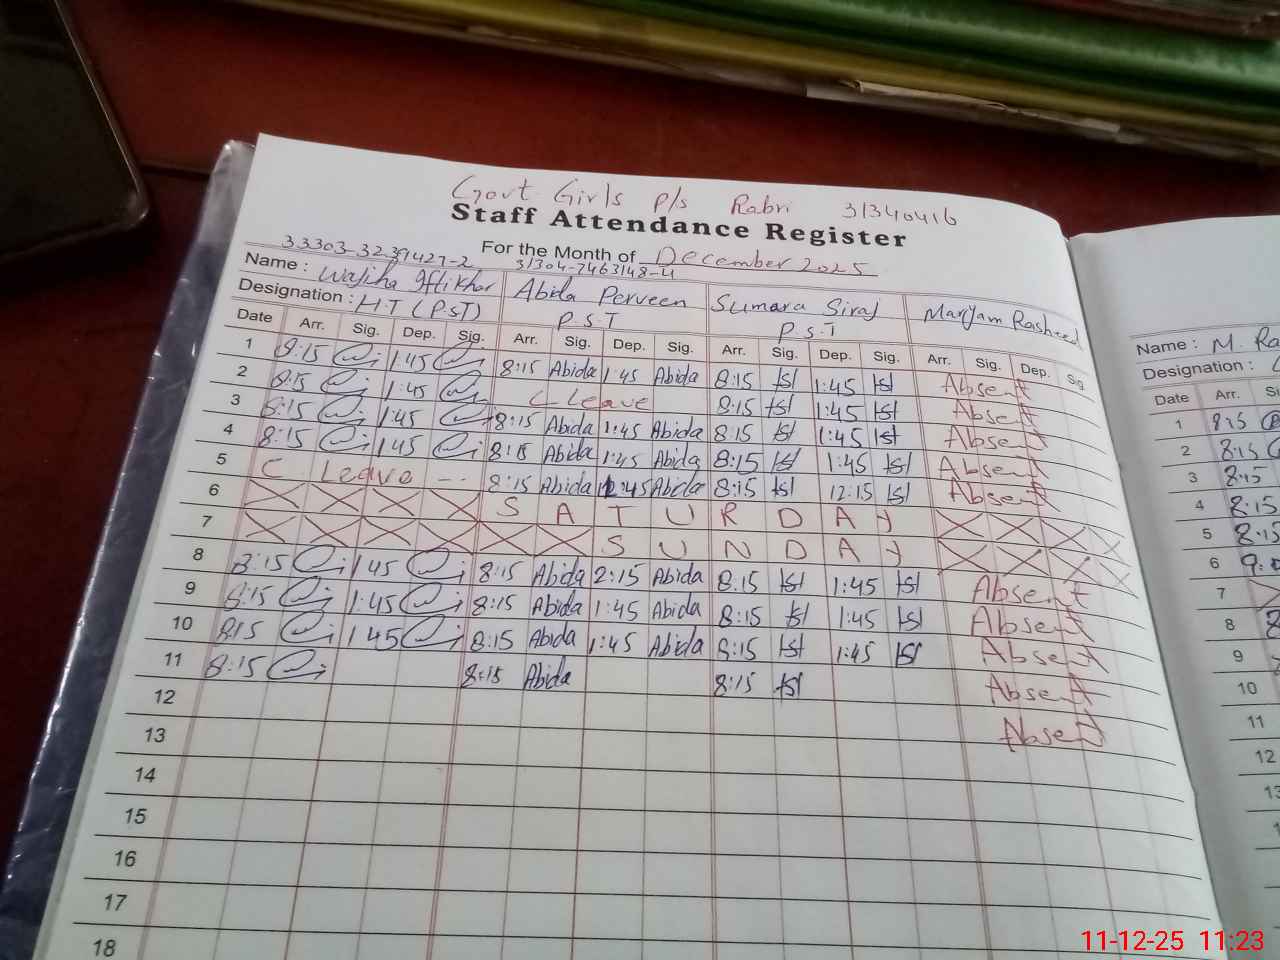 Govt Girls P/s Rabri 31340416
Staff Attendance Register
For the Month of December 2025
33303-3239427-2 31304-7463148-4
Name : Wajiha Iftikhar Abida Perveen Sumara Siraj Maryam Rasheed
Designation : H.T (P.S.T) P.S.T P.S.T
Date Arr. Sig. Dep. Sig. Arr. Sig. Dep. Sig. Arr. Sig. Dep. Sig. Arr. Sig. Dep. Sig
1 8:15 1:45 8:15 Abida 1:45 Abida 8:15 1:45 Absent
2 8:15 1:45 C Leave 8:15 1:45 Absent
3 8:15 1:45 8:15 Abida 1:45 Abida 8:15 1:45 Absent
4 8:15 1:45 8:15 Abida 1:45 Abida 8:15 1:45 Absent
5 C Leave -- 8:15 Abida 12:45 Abida 8:15 12:15 Absent
6 S A T U R D A Y
7 S U N D A Y
8 8:15 1:45 8:15 Abida 2:15 Abida 8:15 1:45 Absent
9 8:15 1:45 8:15 Abida 1:45 Abida 8:15 1:45 Absent
10 8:15 1:45 8:15 Abida 1:45 Abida 8:15 1:45 Absent
11 8:15 8:15 Abida 8:15 Absent
12 Absent
13
14
15
16
17
18
Name : M. Ra
Designation :
Date Arr. Si
1 8:15
2 8:15
3 8:15
4 8:15
5 8:15
6
7
8
9
10
11
12
13
11-12-25 11:23